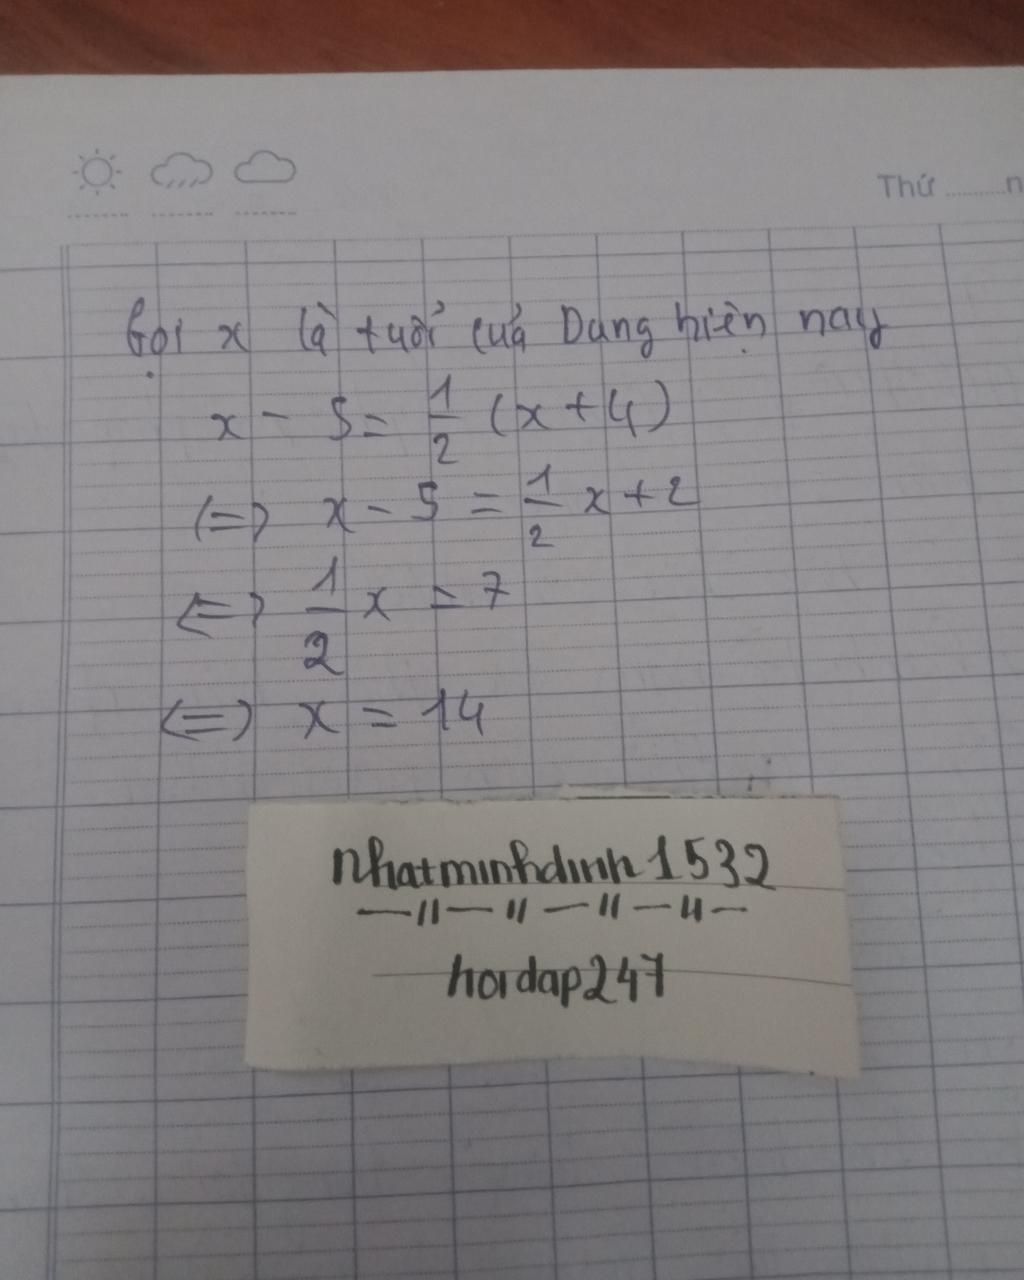 Thứ .........n
Gọi x là tuổi của Dung hiện nay
x - 5 = 1/2 (x + 4)
<=> x - 5 = 1/2 x + 2
<=> 1/2 x = 7
<=> x = 14
nhatminhdinh1532
—〃—〃—〃—〃—
hoidap247